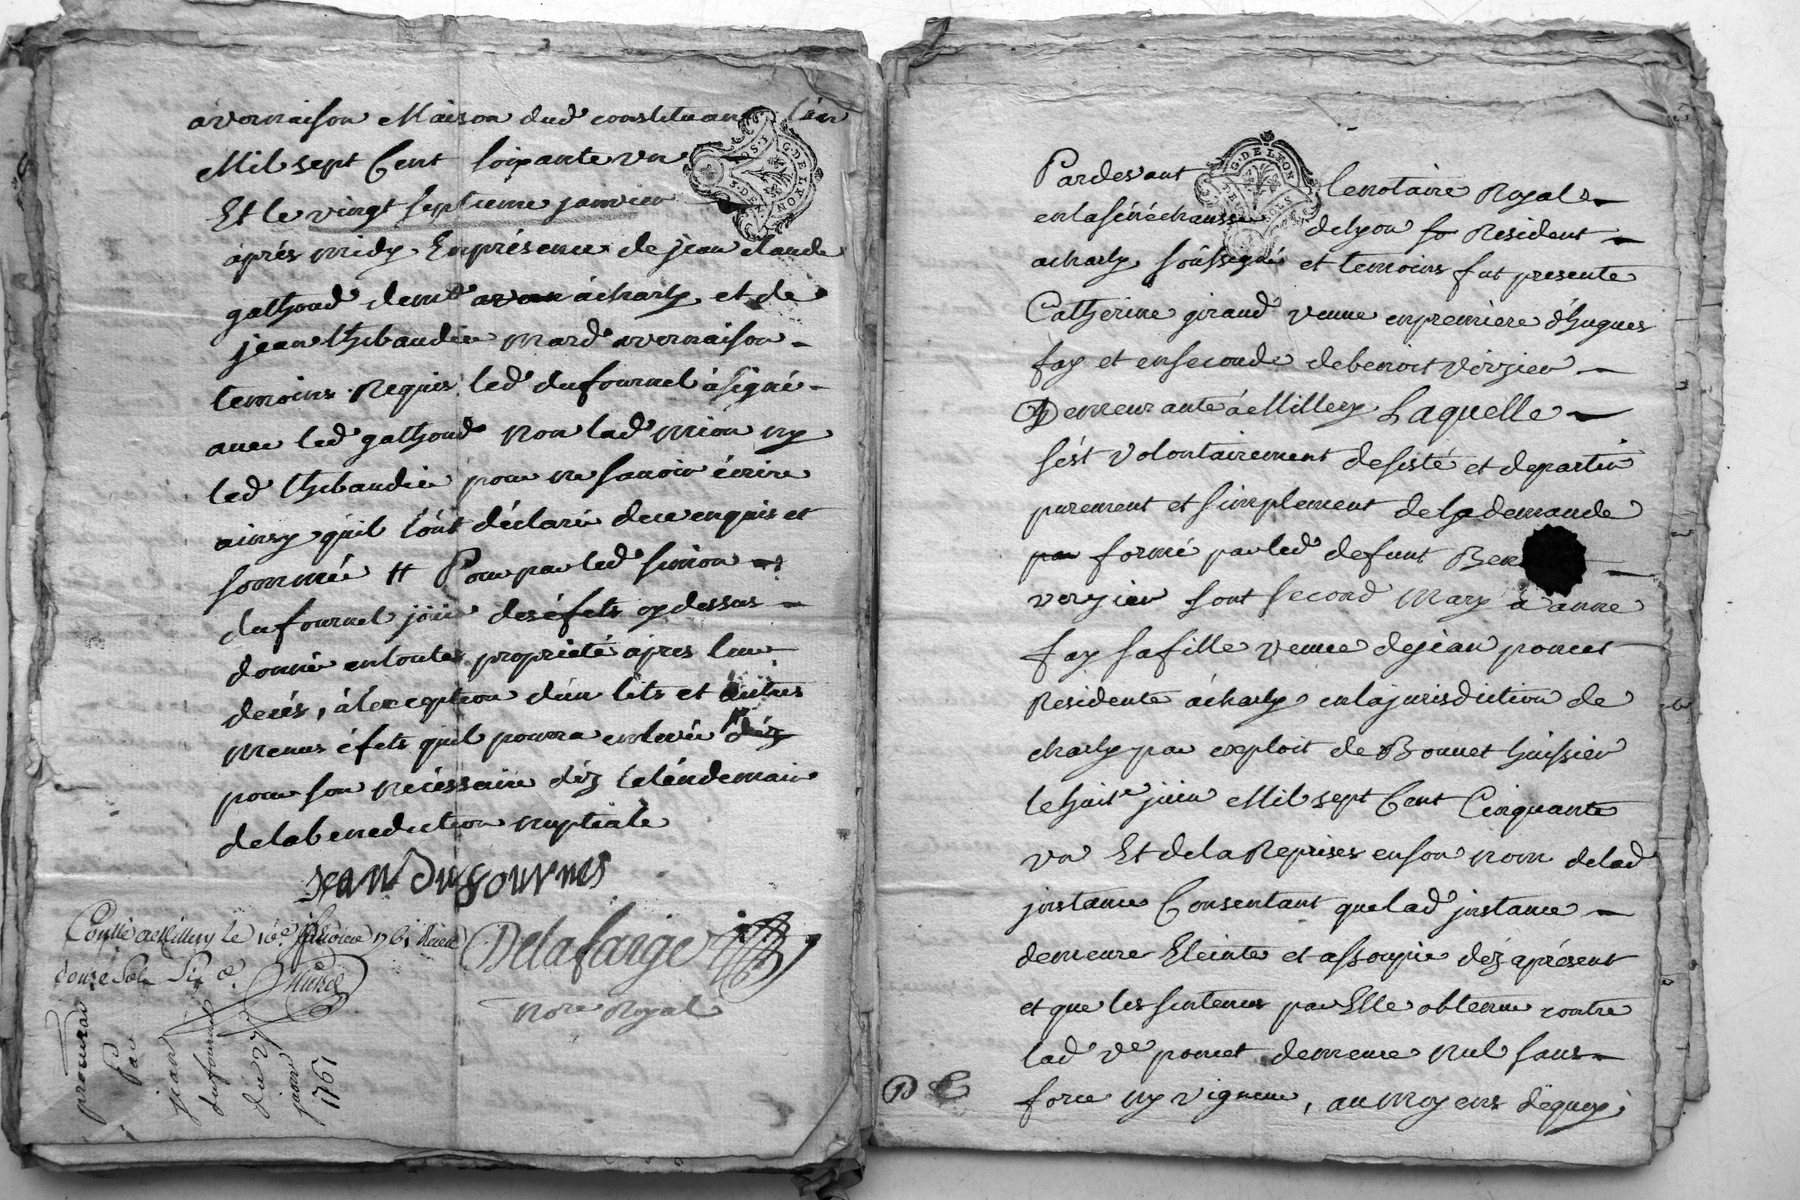 a vernaison Maison dud constituant l'an
Mil sept Cent soixante un
Et le vingt septieme janvier
aprés midy Enprésence de jean claude
gathoud dem.t a charly et de
jean thibaudier mard a vernaison
temoins Requis led dufournel à signé
avec led gathoud Non lad mion ny
led thibaudier pour ne savoir écrire
ainsy quil l'ont déclaré de ce enquis et
sommée # Pour par led simon
dufournel joüir des éfets cy dessus
donné en toute propriété apres leur
decés, à lexception dun lits et autres
menus éfets quil pourra enlevée
pour son nécéssaire déz lelendemain
delabenediction nuptiale
jean dufournel
Conllé a Millery le 10e 1761 Recu
douze Sols Six d.
Delafarge
No.re Royal
procuration
Par
jean
dufournel
du 27
janv
1761
G. DE LYON
Pardevant le notaire Royal
enlasénéchaussée delyon Resident
acharly soussigné et temoins fut presente
Catherine giraud veuve enpremiere d'hugues
fay et enseconde debenoit verzieu
Demeurante à Millery Laquelle
s'ést volontairement desisté et departir
purement et simplement de la demande
formé par led defunt Ben
verzieu sont second mary a anne
fay safille veuve dejean poncet
Residente àcharly enlajurisdiction de
charly par exploit de Bonnet huissier
le huit juin Mil sept Cent Cinquante
un Et dela Reprises enson nom delad
instance Consentant quelad instance
demeure Eteinte et assoupie déz aprésent
et que les sentences par Elle obtenue contre
lad v.e poncet demeure nul sans
force ny vigueur, au moyens dequoy